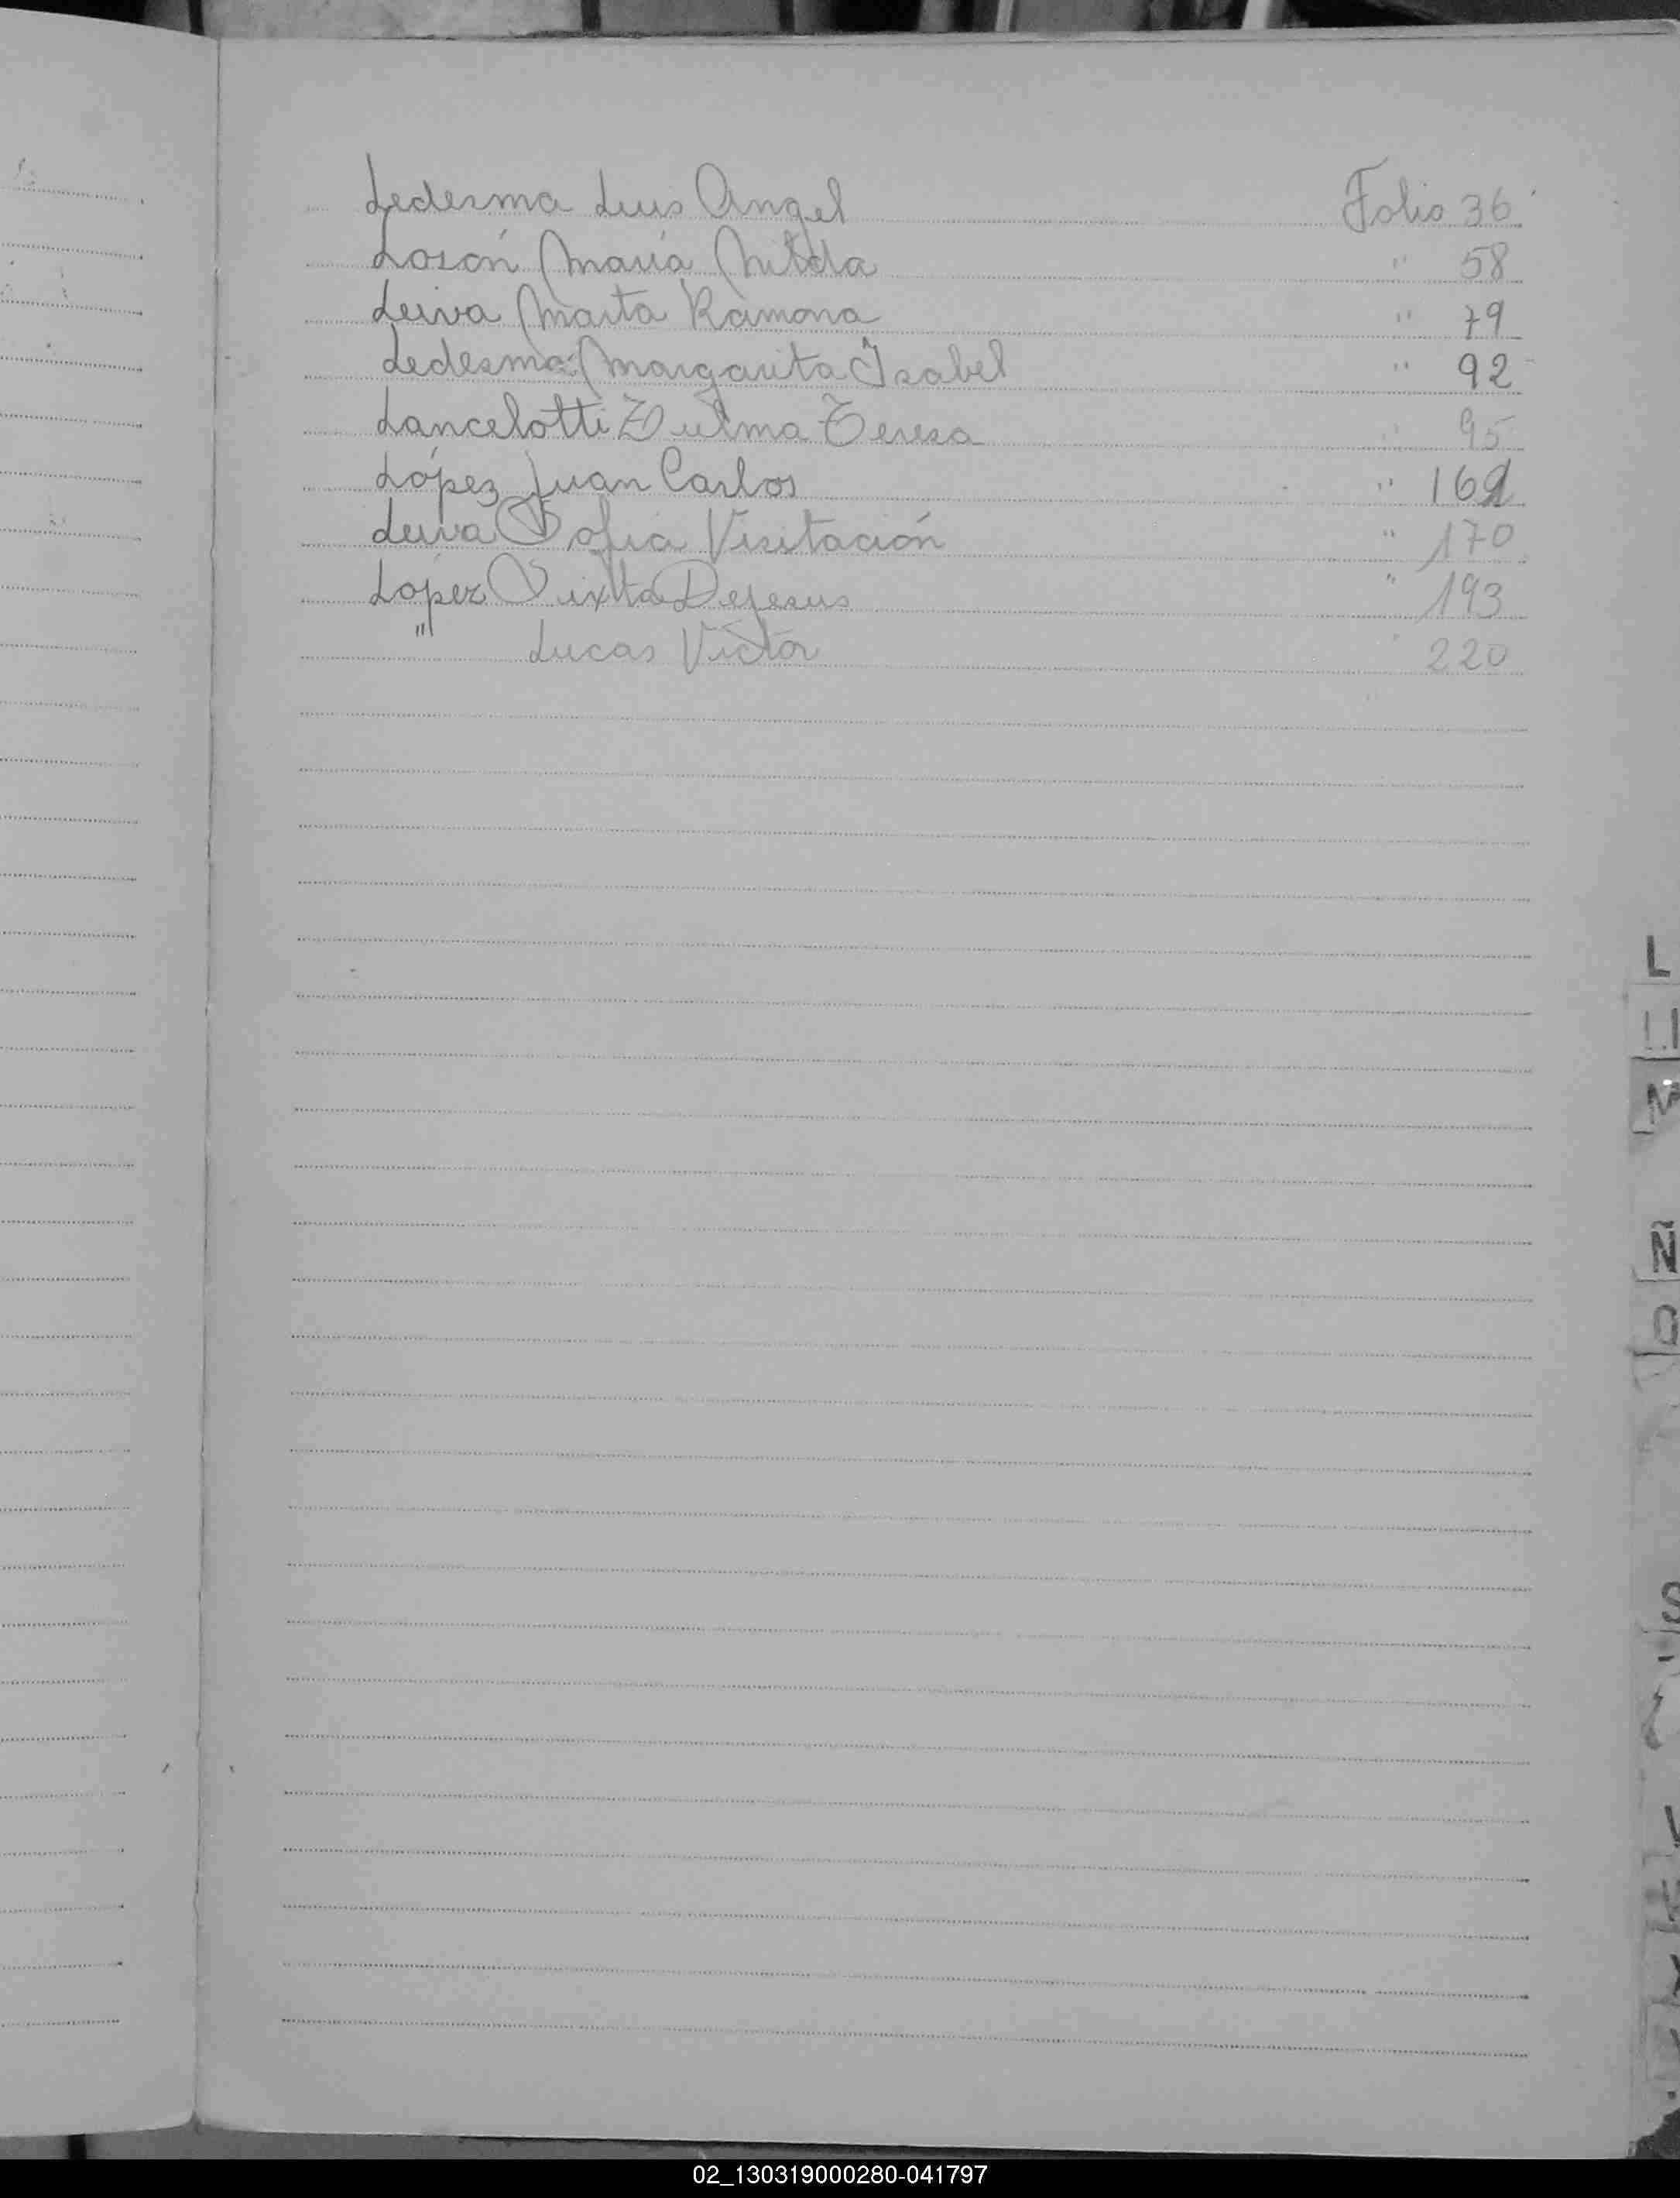 Ledesma Luis Angel Folio 36
Losón María Nilda " 58
Leiva Marta Ramona " 79
Ledesma Margarita Isabel " 92
Lancelotti Zulma Teresa " 95
López Juan Carlos "
Leiva Sofia Visitación " 170
López Sixta Dejesus " 193
" Lucas Victor " 220
L
Ll
M
Ñ
O
S
V
X
02_130319000280-041797